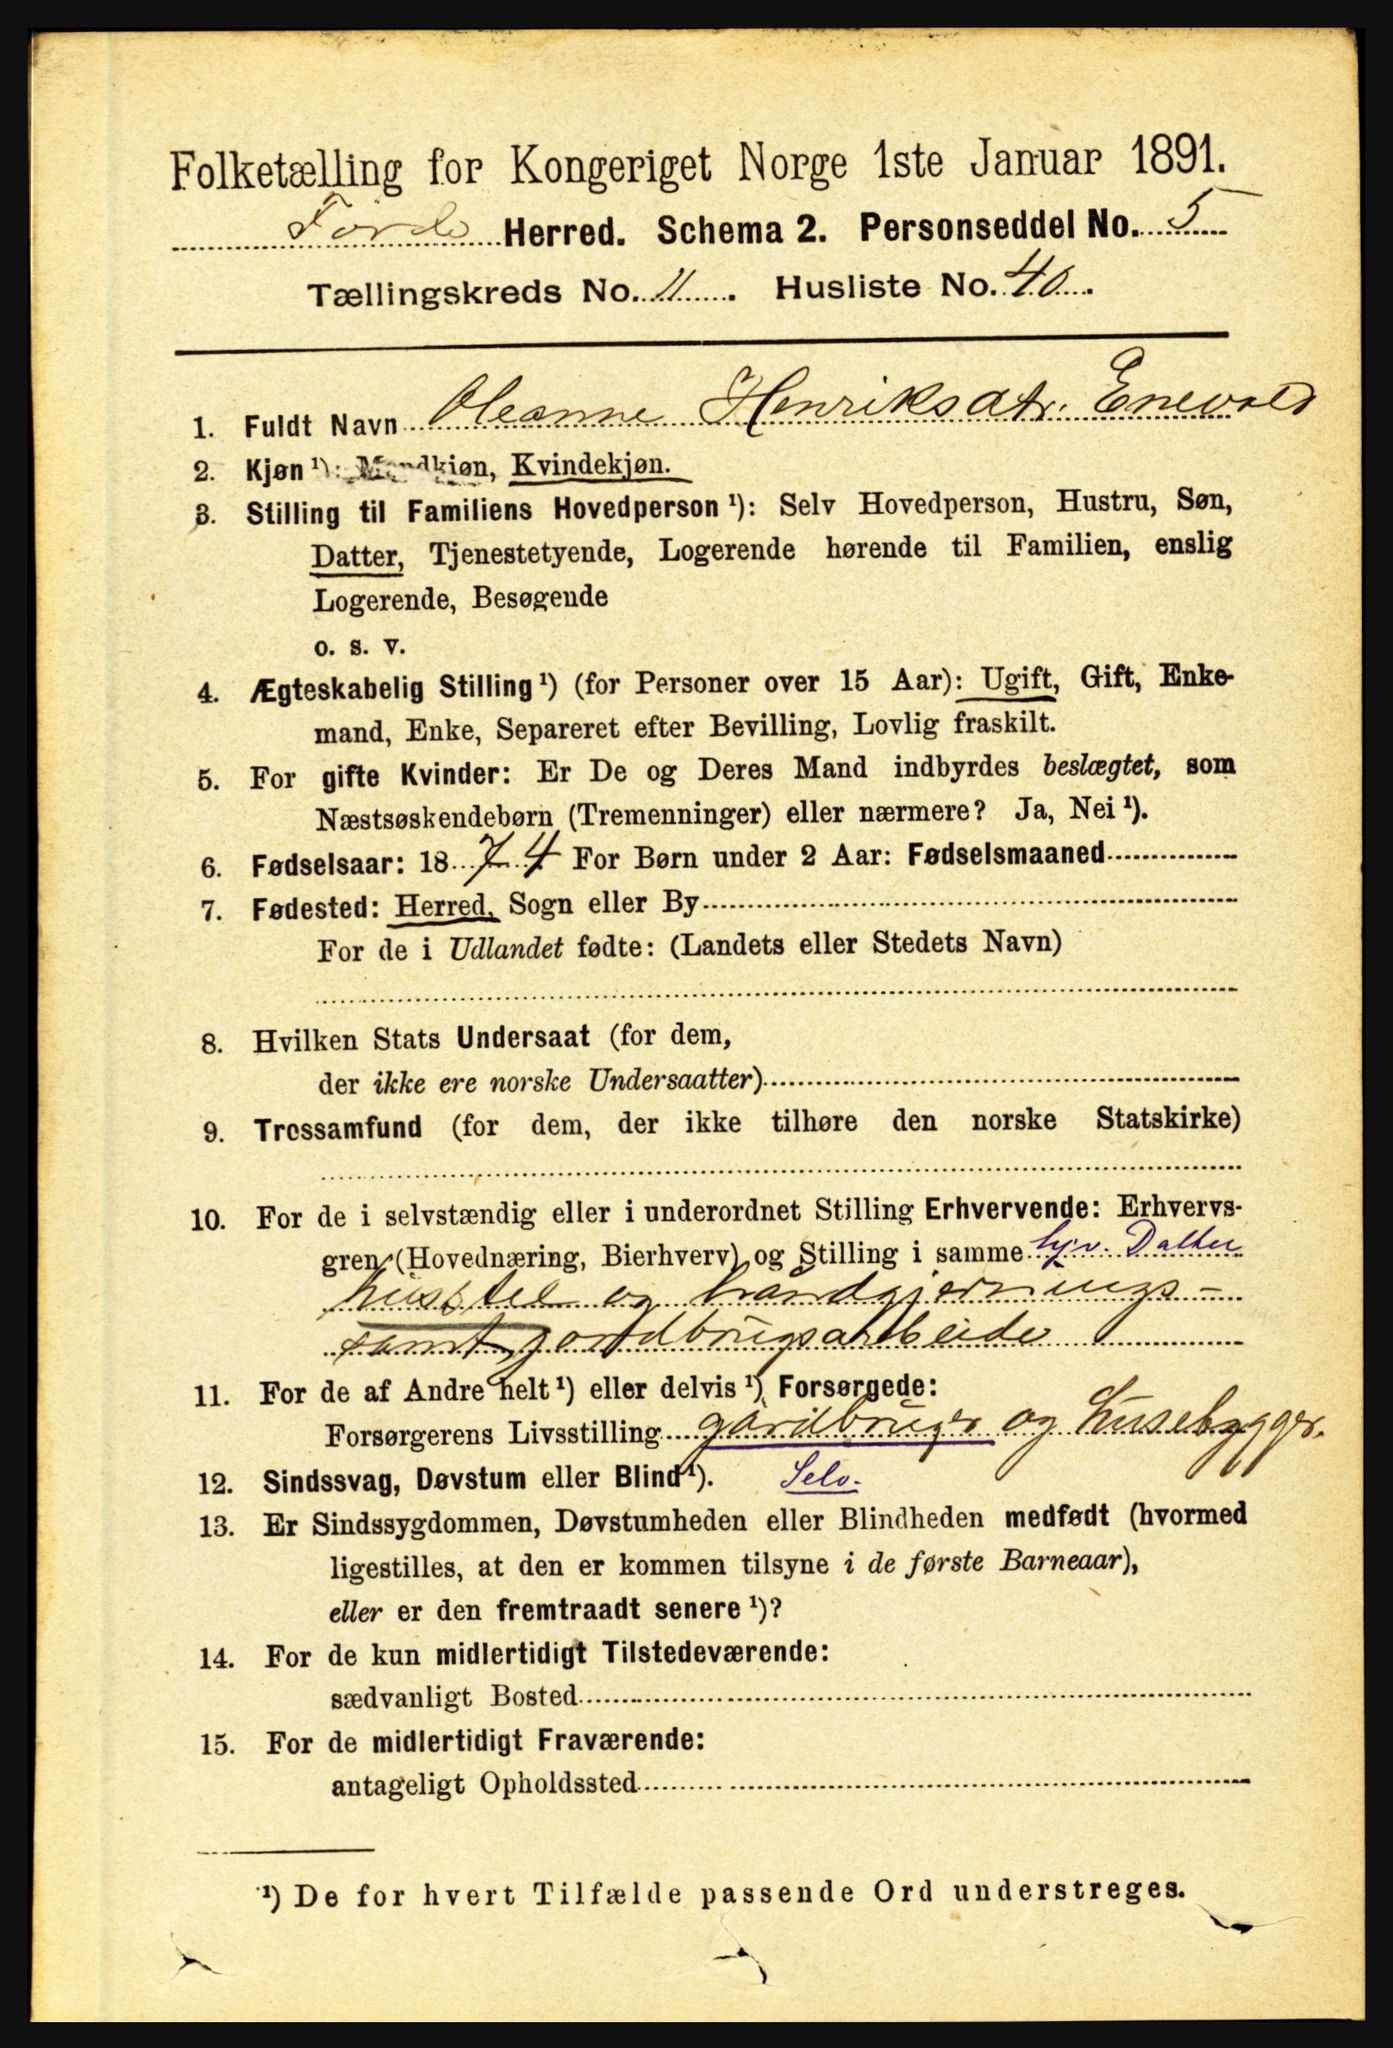 Folketælling for Kongeriget Norge 1ste Januar 1891.
Førde Herred. Schema 2. Personseddel No. 5
Tællingskreds No. 11. Husliste No. 40.
1. Fuldt Navn Oleanne Henriksdtr. Enevold
2. Kjøn ¹): Mandkjøn, Kvindekjøn.
3. Stilling til Familiens Hovedperson ¹): Selv Hovedperson, Hustru, Søn,
Datter, Tjenestetyende, Logerende hørende til Familien, enslig
Logerende, Besøgende
o. s. v.
4. Ægteskabelig Stilling ¹) (for Personer over 15 Aar): Ugift, Gift, Enke-
mand, Enke, Separeret efter Bevilling, Lovlig fraskilt.
5. For gifte Kvinder: Er De og Deres Mand indbyrdes beslægtet, som
Næstsøskendebørn (Tremenninger) eller nærmere? Ja, Nei ¹).
6. Fødselsaar: 1874 For Børn under 2 Aar: Fødselsmaaned
7. Fødested: Herred, Sogn eller By
For de i Udlandet fødte: (Landets eller Stedets Navn)
8. Hvilken Stats Undersaat (for dem,
der ikke ere norske Undersaatter)
9. Trossamfund (for dem, der ikke tilhøre den norske Statskirke)
10. For de i selvstændig eller i underordnet Stilling Erhvervende: Erhvervs-
gren (Hovednæring, Bierhverv) og Stilling i samme hj.v. Datter
husstel og håndgjernings-
samt gardbrugsarbeide
11. For de af Andre helt ¹) eller delvis ¹) Forsørgede:
Forsørgerens Livsstilling gårdbruger og husebygger.
12. Sindssvag, Døvstum eller Blind ¹). Selv.
13. Er Sindssygdommen, Døvstumheden eller Blindheden medfødt (hvormed
ligestilles, at den er kommen tilsyne i de første Barneaar),
eller er den fremtraadt senere ¹)?
14. For de kun midlertidigt Tilstedeværende:
sædvanligt Bosted
15. For de midlertidigt Fraværende:
antageligt Opholdssted
¹) De for hvert Tilfælde passende Ord understreges.